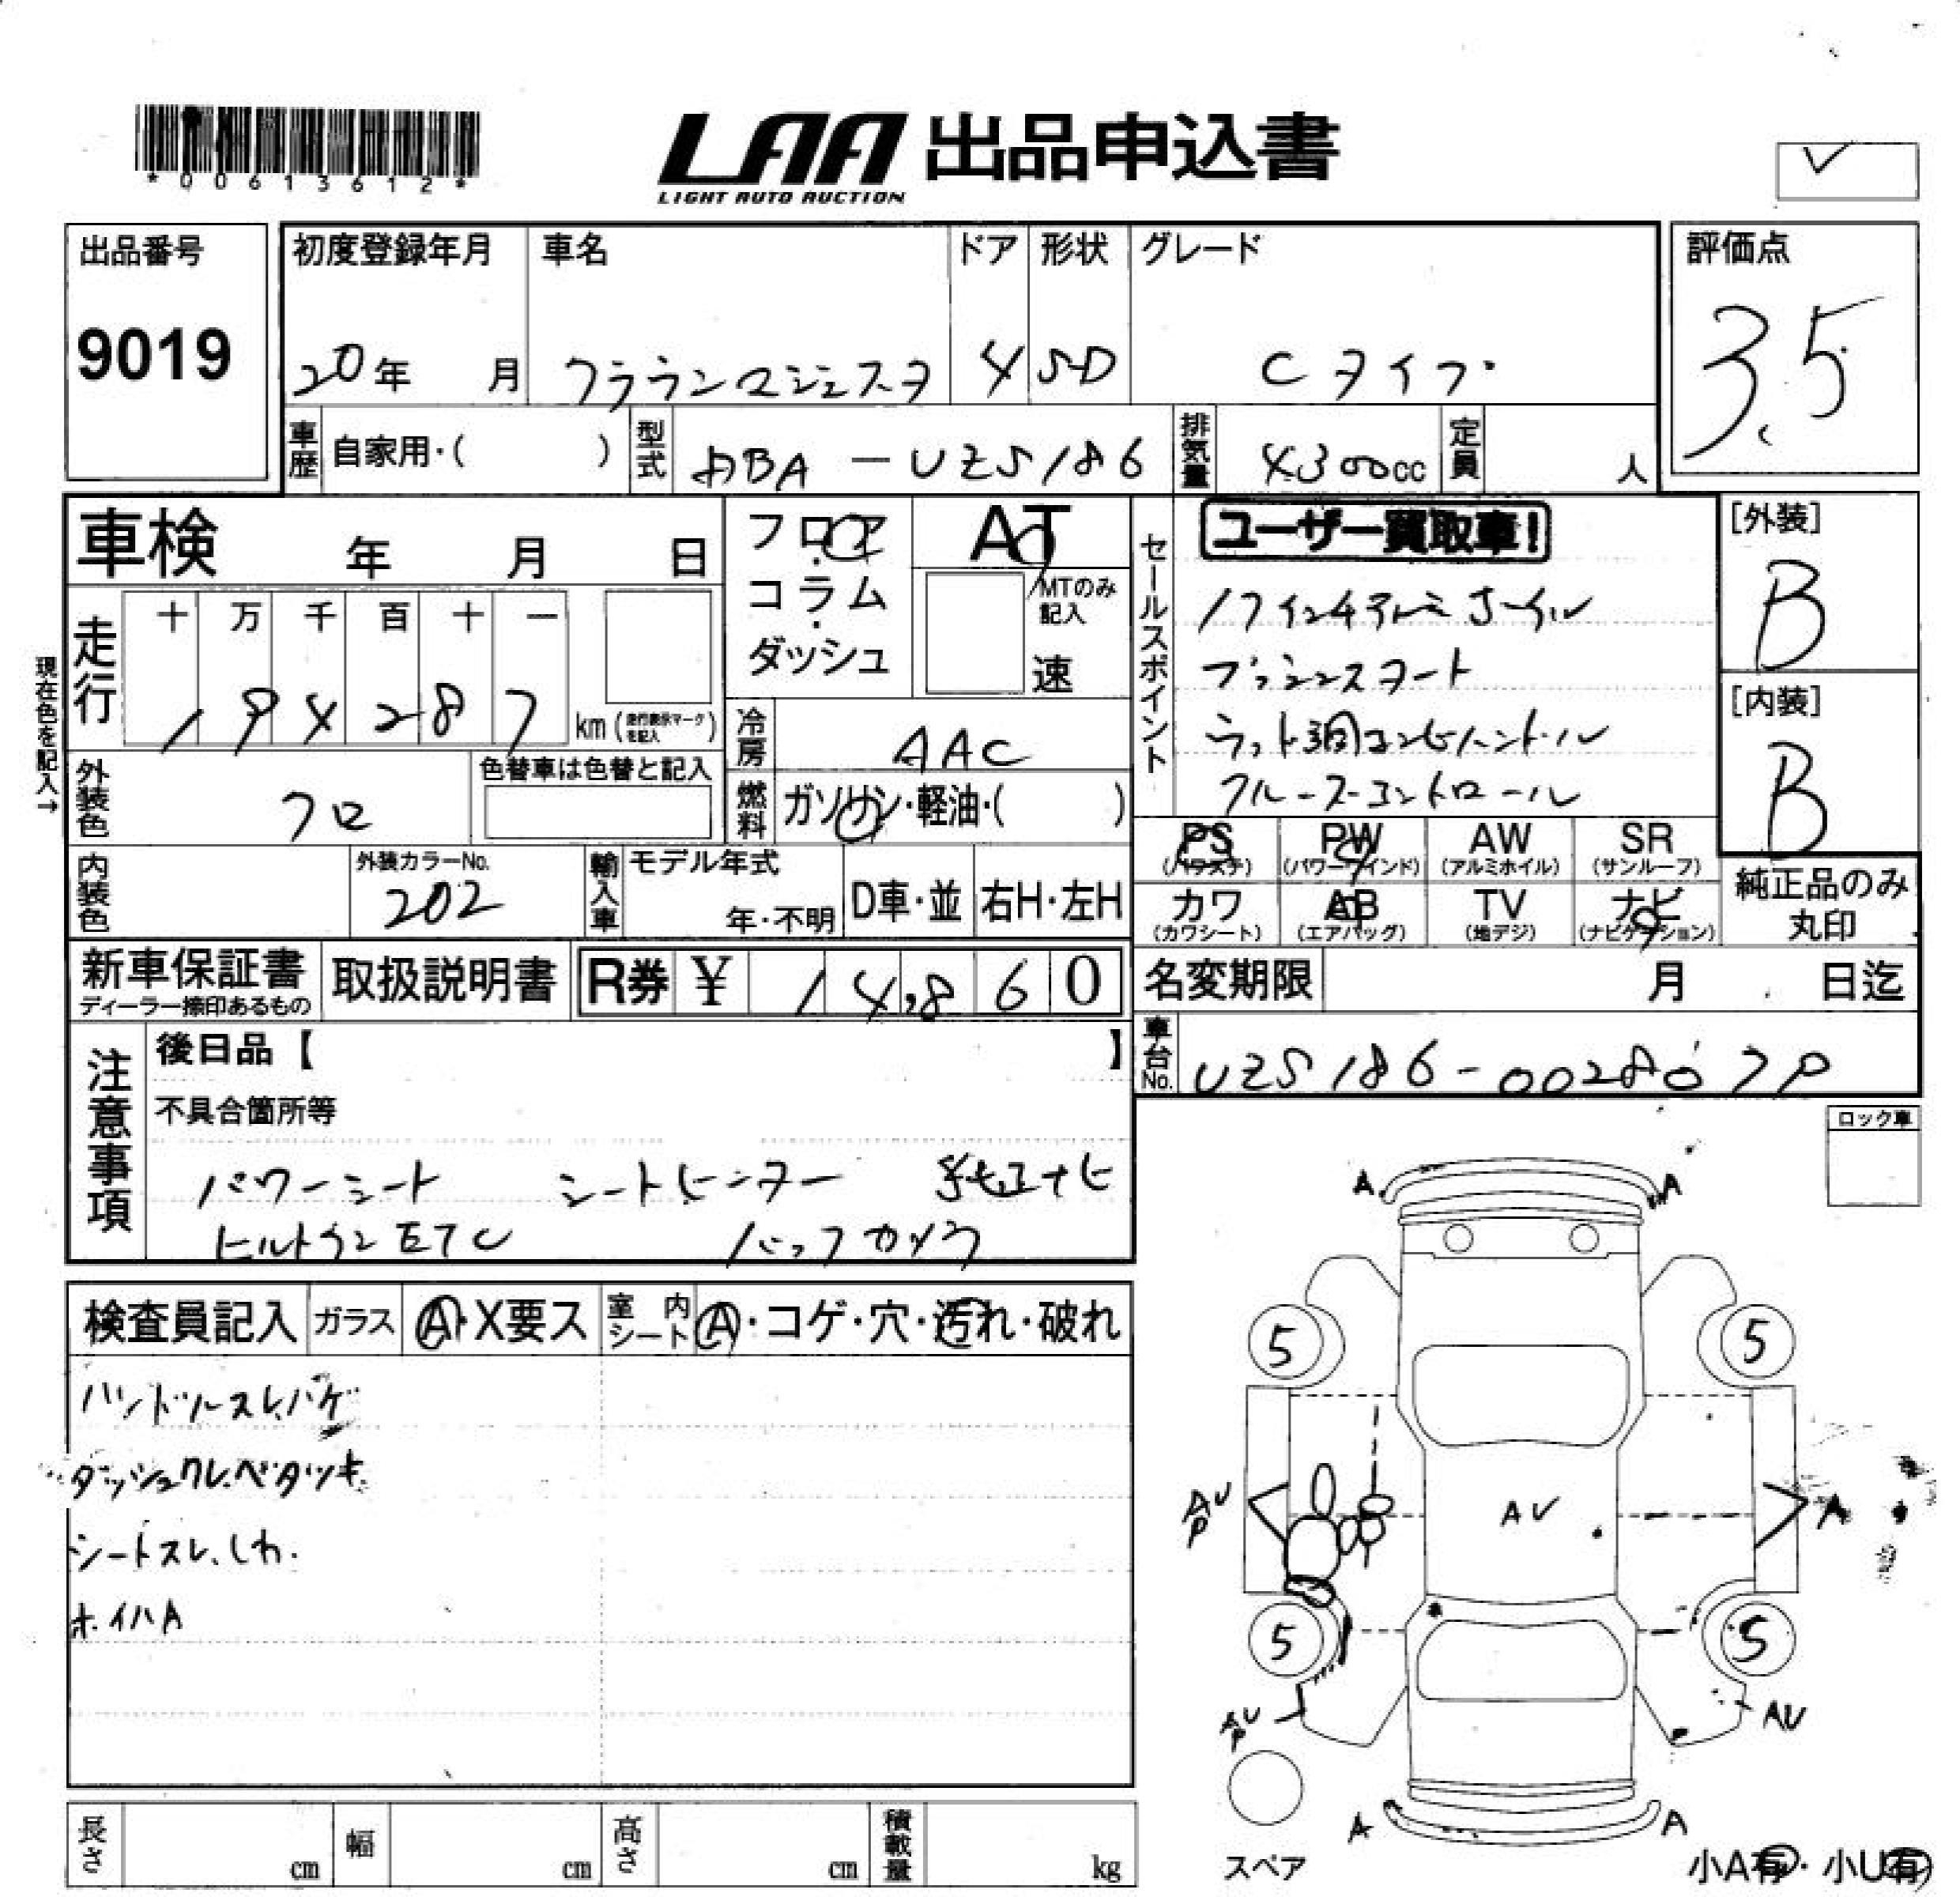 *00613612*
LAA 出品申込書
LIGHT AUTO AUCTION
✓
出品番号
9019
初度登録年月
20年 月
車名
クラウンマジェスタ
ドア
4
形状
SD
グレード
Cタイプ
評価点
3.5
車歴
自家用・( )
型式
DBA-UZS186
排気量
4300cc
定員
人
車検 年 月 日
フロア・コラム・ダッシュ
AT
MTのみ記入
速
セールスポイント
ユーザー買取車!
17インチアルミホイル
プッシュスタート
ウッド調コンビハンドル
クルーズコントロール
[外装]
B
[内装]
B
現在色を記入→
走行
十 万 千 百 十 一
194287
km(走行表示マークを記入)
冷房
AAC
外装色
クロ
色替車は色替と記入
燃料
ガソリン・軽油・( )
PS
(パワステ)
PW
(パワーウインド)
AW
(アルミホイル)
SR
(サンルーフ)
カワ
(カワシート)
AB
(エアバッグ)
TV
(地デジ)
ナビ
(ナビゲーション)
純正品のみ
丸印
内装色
外装カラーNo.
202
輸入車
モデル年式
年・不明
D車・並
右H・左H
新車保証書
ディーラー捺印あるもの
取扱説明書
R券 ¥ 14,860
名変期限
月 日迄
車台No.
UZS186-0028
注意事項
後日品【 】
不具合箇所等
パワーシート シートヒーター 純正ナビ
ビルトインETC バックカメラ
ロック車
検査員記入
ガラス
A・X要ス
室内シート
A・コゲ・穴・汚れ・破れ
ハンドルスレ、ハゲ
ダッシュワレ、ベタツキ
シートスレ、しわ.
ホイハA
A A
5 5
AU
P
AU
A
5 5
AU
P
AU
A A
スペア
小A有・小U有
長さ cm
幅 cm
高さ cm
積載量 kg